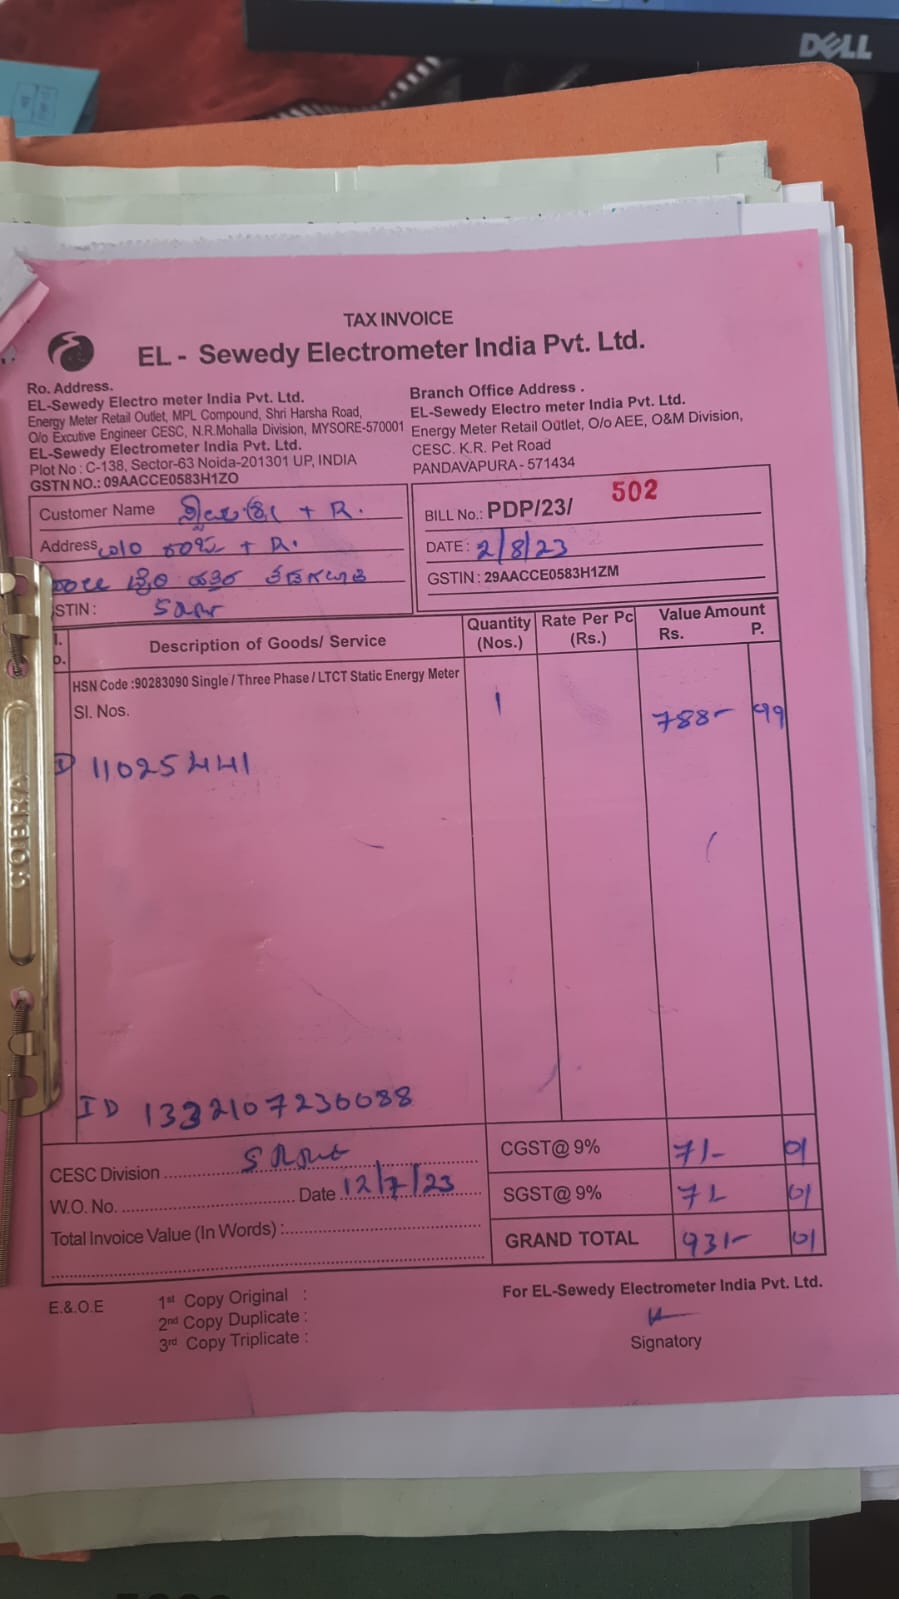 DELL
TAX INVOICE
EL - Sewedy Electrometer India Pvt. Ltd.
Ro. Address.
EL-Sewedy Electro meter India Pvt. Ltd.
Energy Meter Retail Outlet, MPL Compound, Shri Harsha Road,
O/o Excutive Engineer CESC, N.R.Mohalla Division, MYSORE-570001
EL-Sewedy Electrometer India Pvt. Ltd.
Plot No : C-138, Sector-63 Noida-201301 UP, INDIA
GSTN NO.: 09AACCE0583H1ZO
Branch Office Address .
EL-Sewedy Electro meter India Pvt. Ltd.
Energy Meter Retail Outlet, O/o AEE, O&M Division,
CESC. K.R. Pet Road
PANDAVAPURA - 571434
Customer Name
Address
STIN :
BILL No.: PDP/23/ 502
DATE : 2/8/23
GSTIN : 29AACCE0583H1ZM
Description of Goods/ Service Quantity (Nos.) Rate Per Pc (Rs.) Value Amount Rs. P.
HSN Code :90283090 Single / Three Phase / LTCT Static Energy Meter
Sl. Nos. 1 788- 99
11025441
ID 1332107230088
CESC Division
CGST@ 9% 71- 01
W.O. No. Date 12/7/23
SGST@ 9% 71 01
Total Invoice Value (In Words) :
GRAND TOTAL 931- 01
E.& O.E
1st Copy Original :
2nd Copy Duplicate :
3rd Copy Triplicate :
For EL-Sewedy Electrometer India Pvt. Ltd.
Signatory
COBRA